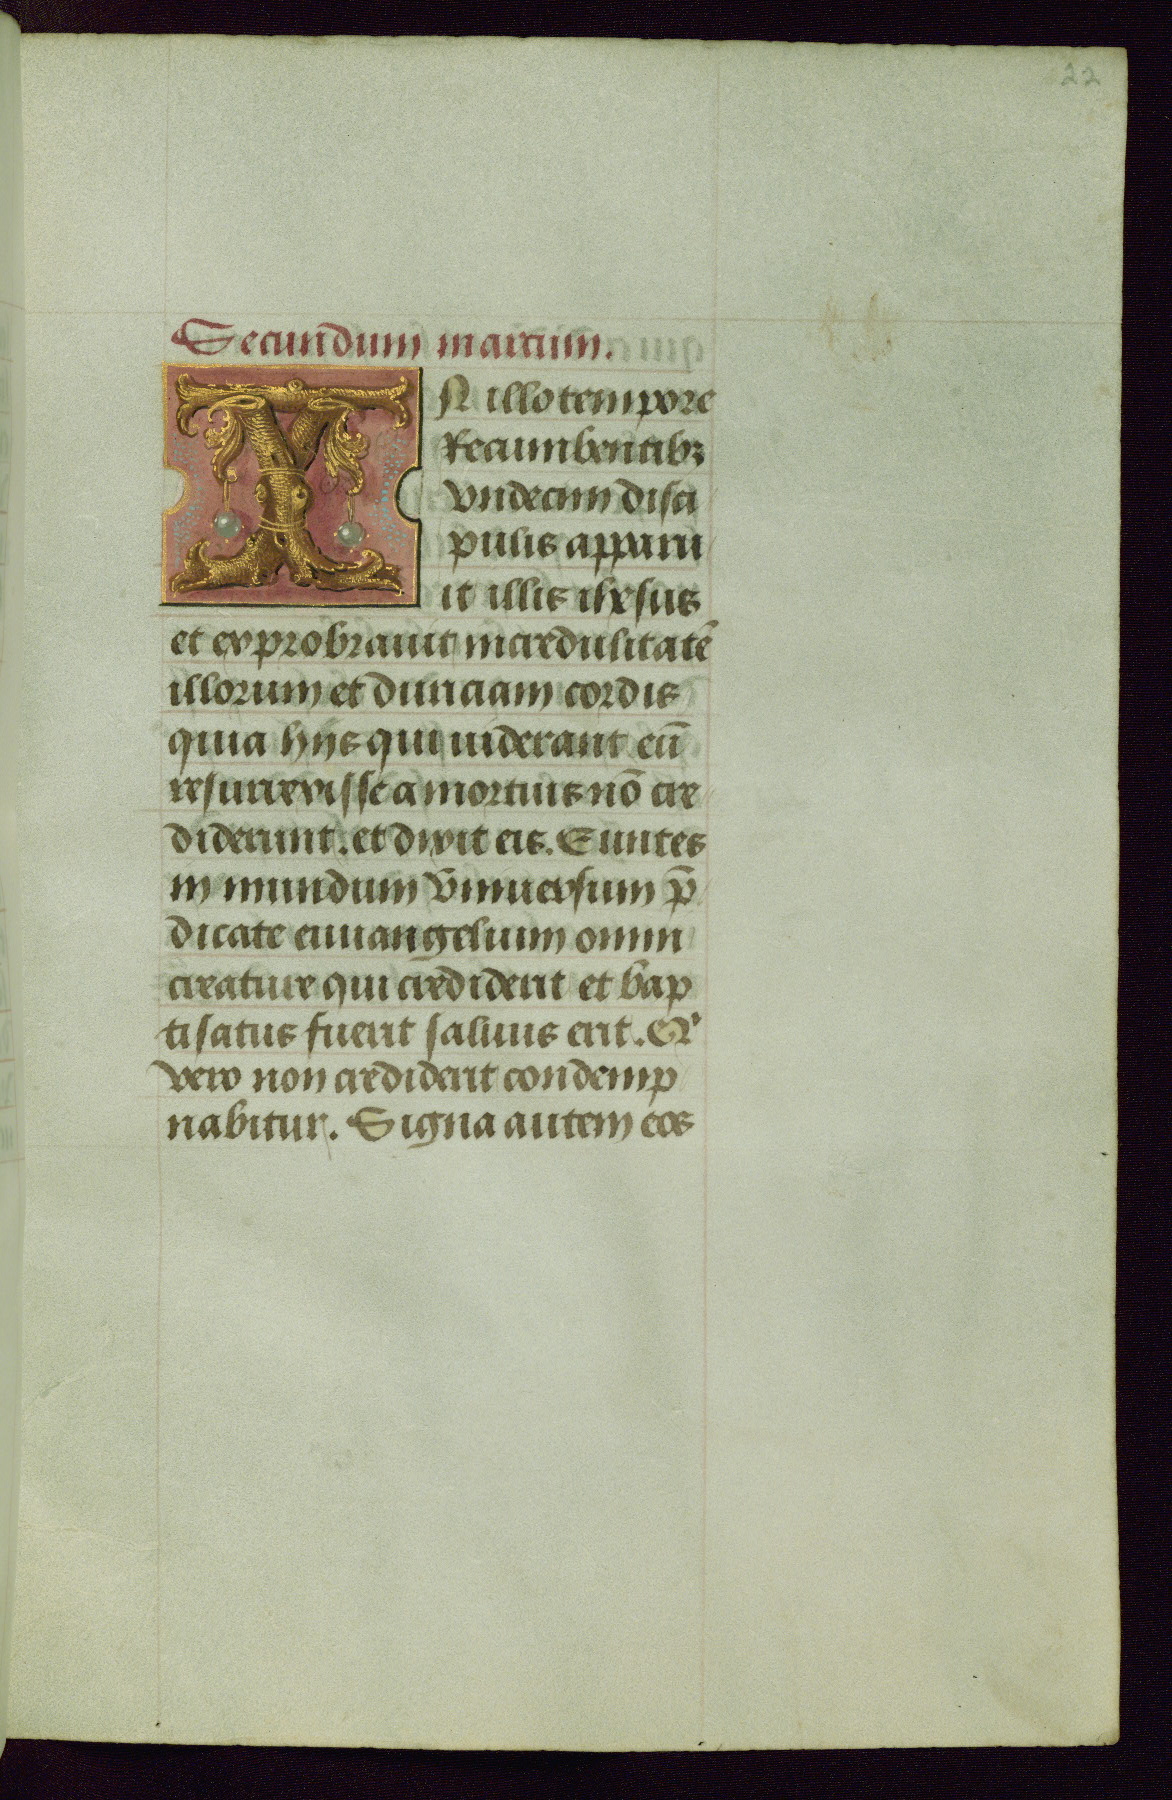 22
Secundum marcum.
IN illo tempore
Recumbentibꝫ
vndecim disci
pulis apparu
it illis ihesus
et exprobrauit incredulitatē
illorum et duriciam cordis
quia hijs qui uiderant eū
resurrexisse a mortuis nō cre
diderunt. et dixit eis. Euntes
in mundum vniuersum p̄
dicate euuangelium omni
creature qui crediderit et bap
tisatus fuerit saluus erit. Qͥ
vero non crediderit condemp
nabitur. Signa autem eos